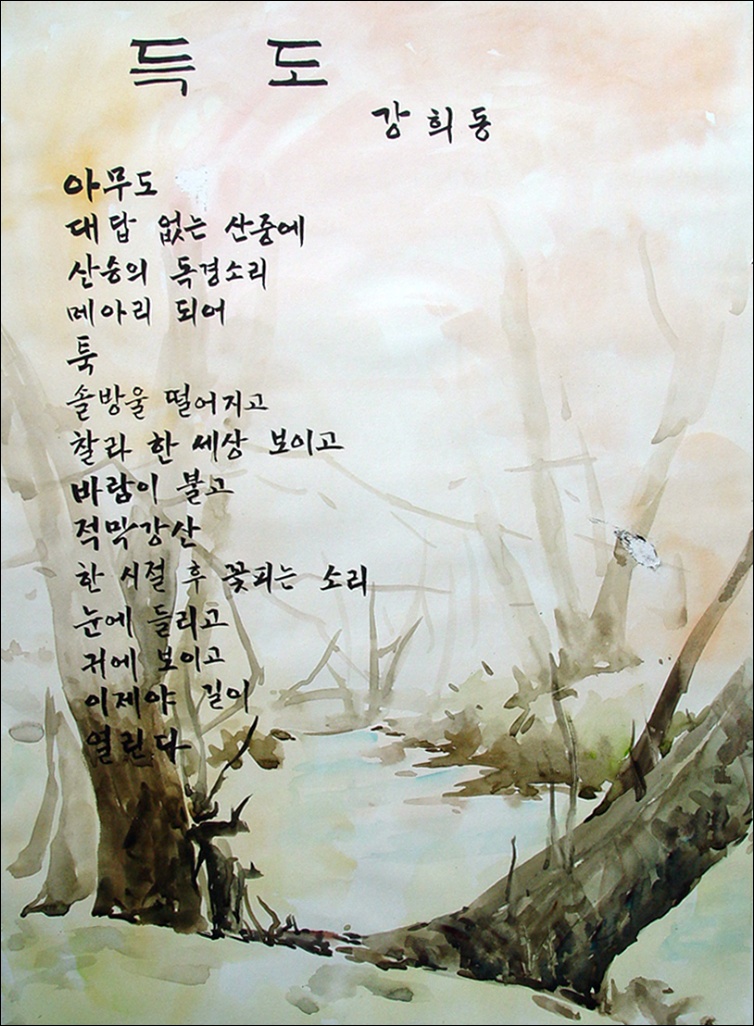 득 도
강 희 동
아무도
대답 없는 산중에
산승의 독경소리
메아리 되어
툭
솔방울 떨어지고
찰라 한 세상 보이고
바람이 불고
적막강산
한 시절 후 꽃피는 소리
눈에 들리고
귀에 보이고
이제야 길이
열린다